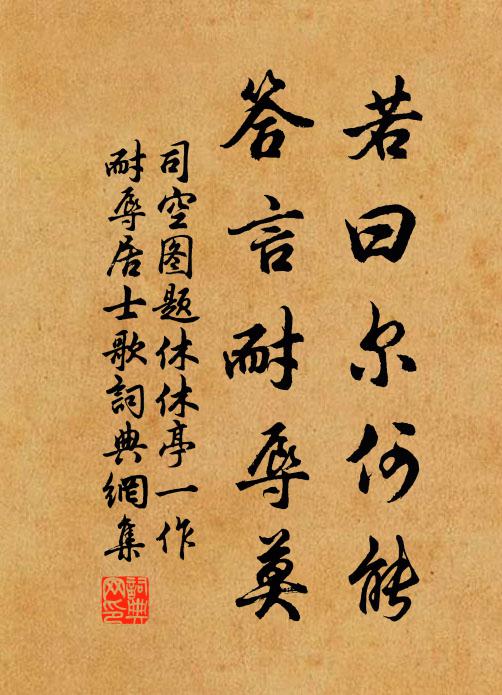 若曰尔何能
答言耐辱莫
司空图题休休亭一作
耐辱居士歌词典網集
詞典網印